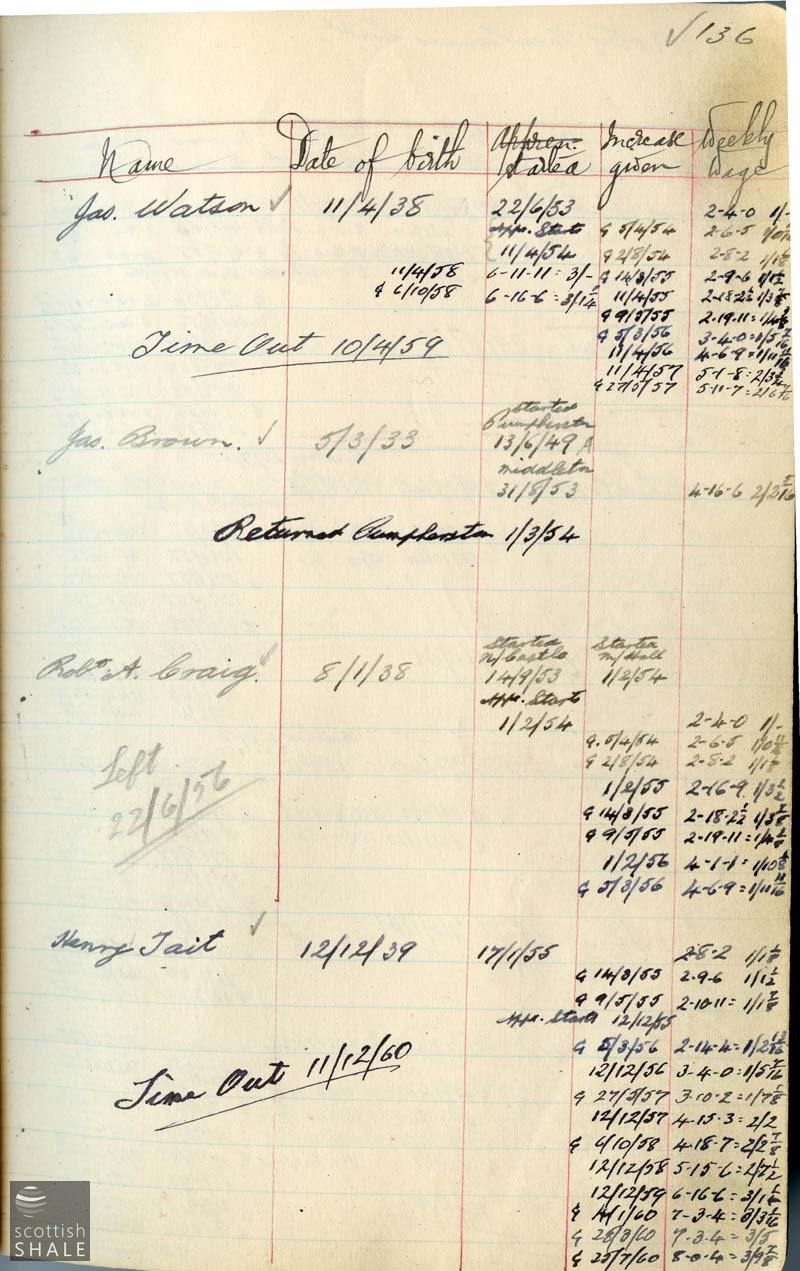 ✓136
Name Date of birth Appren. started Increase given Weekly wage
Jas. Watson ✓ 11/4/38 22/6/53 2-4-0 1/-
App. Starts G 5/4/54 2-6-5
11/4/54 G 2/8/54 2-8-2 1/1⅛
11/4/58 6-11-11 = 3/- G 14/3/55 2-9-6 1/1½
G 6/10/58 6-16-6 = 3/1¼ 11/4/55 2-18-2½ 1/3⅞
G 9/5/55 2-19-11 = 1/4⅜
G 5/3/56 3-4-0 = 1/5 7/16
Time Out 10/4/59 11/4/56 4-6-9 = 1/11 11/16
11/4/57 5-1-8 = 2/3¾
G 27/5/57 5-11-7 = 2/6 7/16
Started
Pumpherston
Jas. Brown. ✓ 5/3/33 13/6/49 A
Middleton
31/8/53 4-16-6 2/2 5/16
Returned Pumpherston 1/3/54
Started Started
N/Castle M/Hall
Robt A. Craig. ✓ 8/1/38 14/9/53 1/2/54
App. Starts
1/2/54 2-4-0 1/-
G. 5/4/54 2-6-5
G 2/8/54 2-8-2 1/1⅛
Left 1/2/55 2-16-9 1/3½
22/6/56 G 14/3/55 2-18-2½ 1/3⅞
G 9/5/55 2-19-11 = 1/4⅜
1/2/56 4-1-1 = 1/10⅛
G 5/3/56 4-6-9 = 1/11 11/16
Henry Tait ✓ 12/12/39 17/1/55 2-8-2 1/1⅛
G 14/3/55 2-9-6 1/1½
G 9/5/55 2-10-11 = 1/1⅞
App. Starts 12/12/55
G 5/3/56 2-14-4 = 1/2 13/16
12/12/56 3-4-0 = 1/5 7/16
Time Out 11/12/60 G 27/5/57 3-10-2 = 1/7⅛
12/12/57 4-15-3 = 2/2
G 6/10/58 4-18-7 = 2/2⅞
12/12/58 5-15-6 = 2/7½
12/12/59 6-16-6 = 3/1¼
G 4/1/60 7-3-4 = 3/3 1/16
G 28/3/60 7-3-4 = 3/5
G 25/7/60 8-0-4 = 3/9⅞
scottish
SHALE